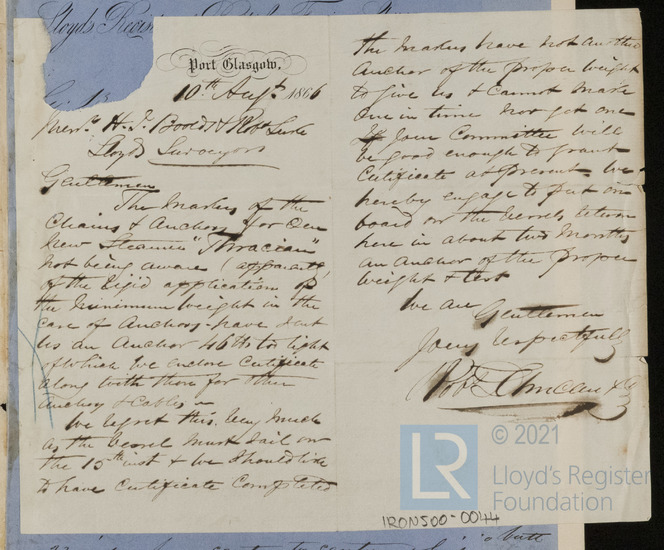 Lloyds Register
Port Glasgow,
10th Augst 1866
Messrs H. J. Boolds & Robt
Lloyds Surveyors
Gentlemen
The Makers of the
Chains & Anchors for Our
New Steamer "Thracian"
not being aware (apparently)
of the rigid application of
the minimum weight in the
case of Anchors have sent
us an Anchor 46 lbs too light
of which we enclose Certificate
along with those for other
Anchors & Cables -
We regret this very much
as the vessel must sail on
the 15th inst & we should like
to have Certificate Completed
the Makers have not another
Anchor of the proper weight
to give us & cannot make
one in time nor get one
If Your Committee will
be good enough to grant
Certificate at present We
hereby engage to put on
board on the vessels return
here in about two Months
an anchor of the proper
weight & test
We are
Gentlemen
Yours respectfully
Robt Duncan & Co
LR
© 2021
Lloyd's Register
Foundation
IRON500-0044